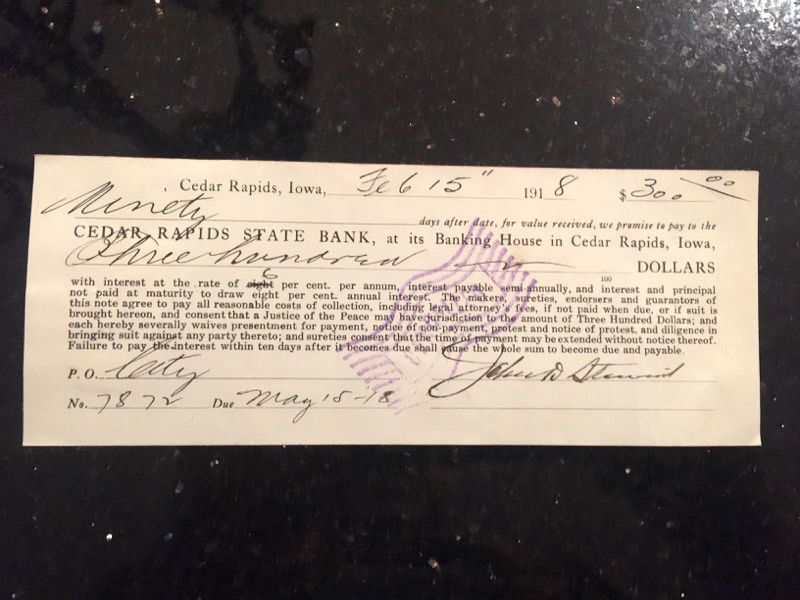 Cedar Rapids, Iowa, Feb 15" 1918 $300 00
Ninety days after date, for value received, we promise to pay to the
CEDAR RAPIDS STATE BANK, at its Banking House in Cedar Rapids, Iowa,
Three hundred no/100 DOLLARS
6
with interest at the rate of eight per cent. per annum, interest payable semi-annually, and interest and principal
not paid at maturity to draw eight per cent. annual interest. The makers, sureties, endorsers and guarantors of
this note agree to pay all reasonable costs of collection, including legal attorney's fees, if not paid when due, or if suit is
brought hereon, and consent that a Justice of the Peace may have jurisdiction to the amount of Three Hundred Dollars; and
each hereby severally waives presentment for payment, notice of non-payment, protest and notice of protest, and diligence in
bringing suit against any party thereto; and sureties consent that the time of payment may be extended without notice thereof.
Failure to pay the interest within ten days after it becomes due shall cause the whole sum to become due and payable.
P. O. City John D Stewart
No. 7872 Due May 18-18